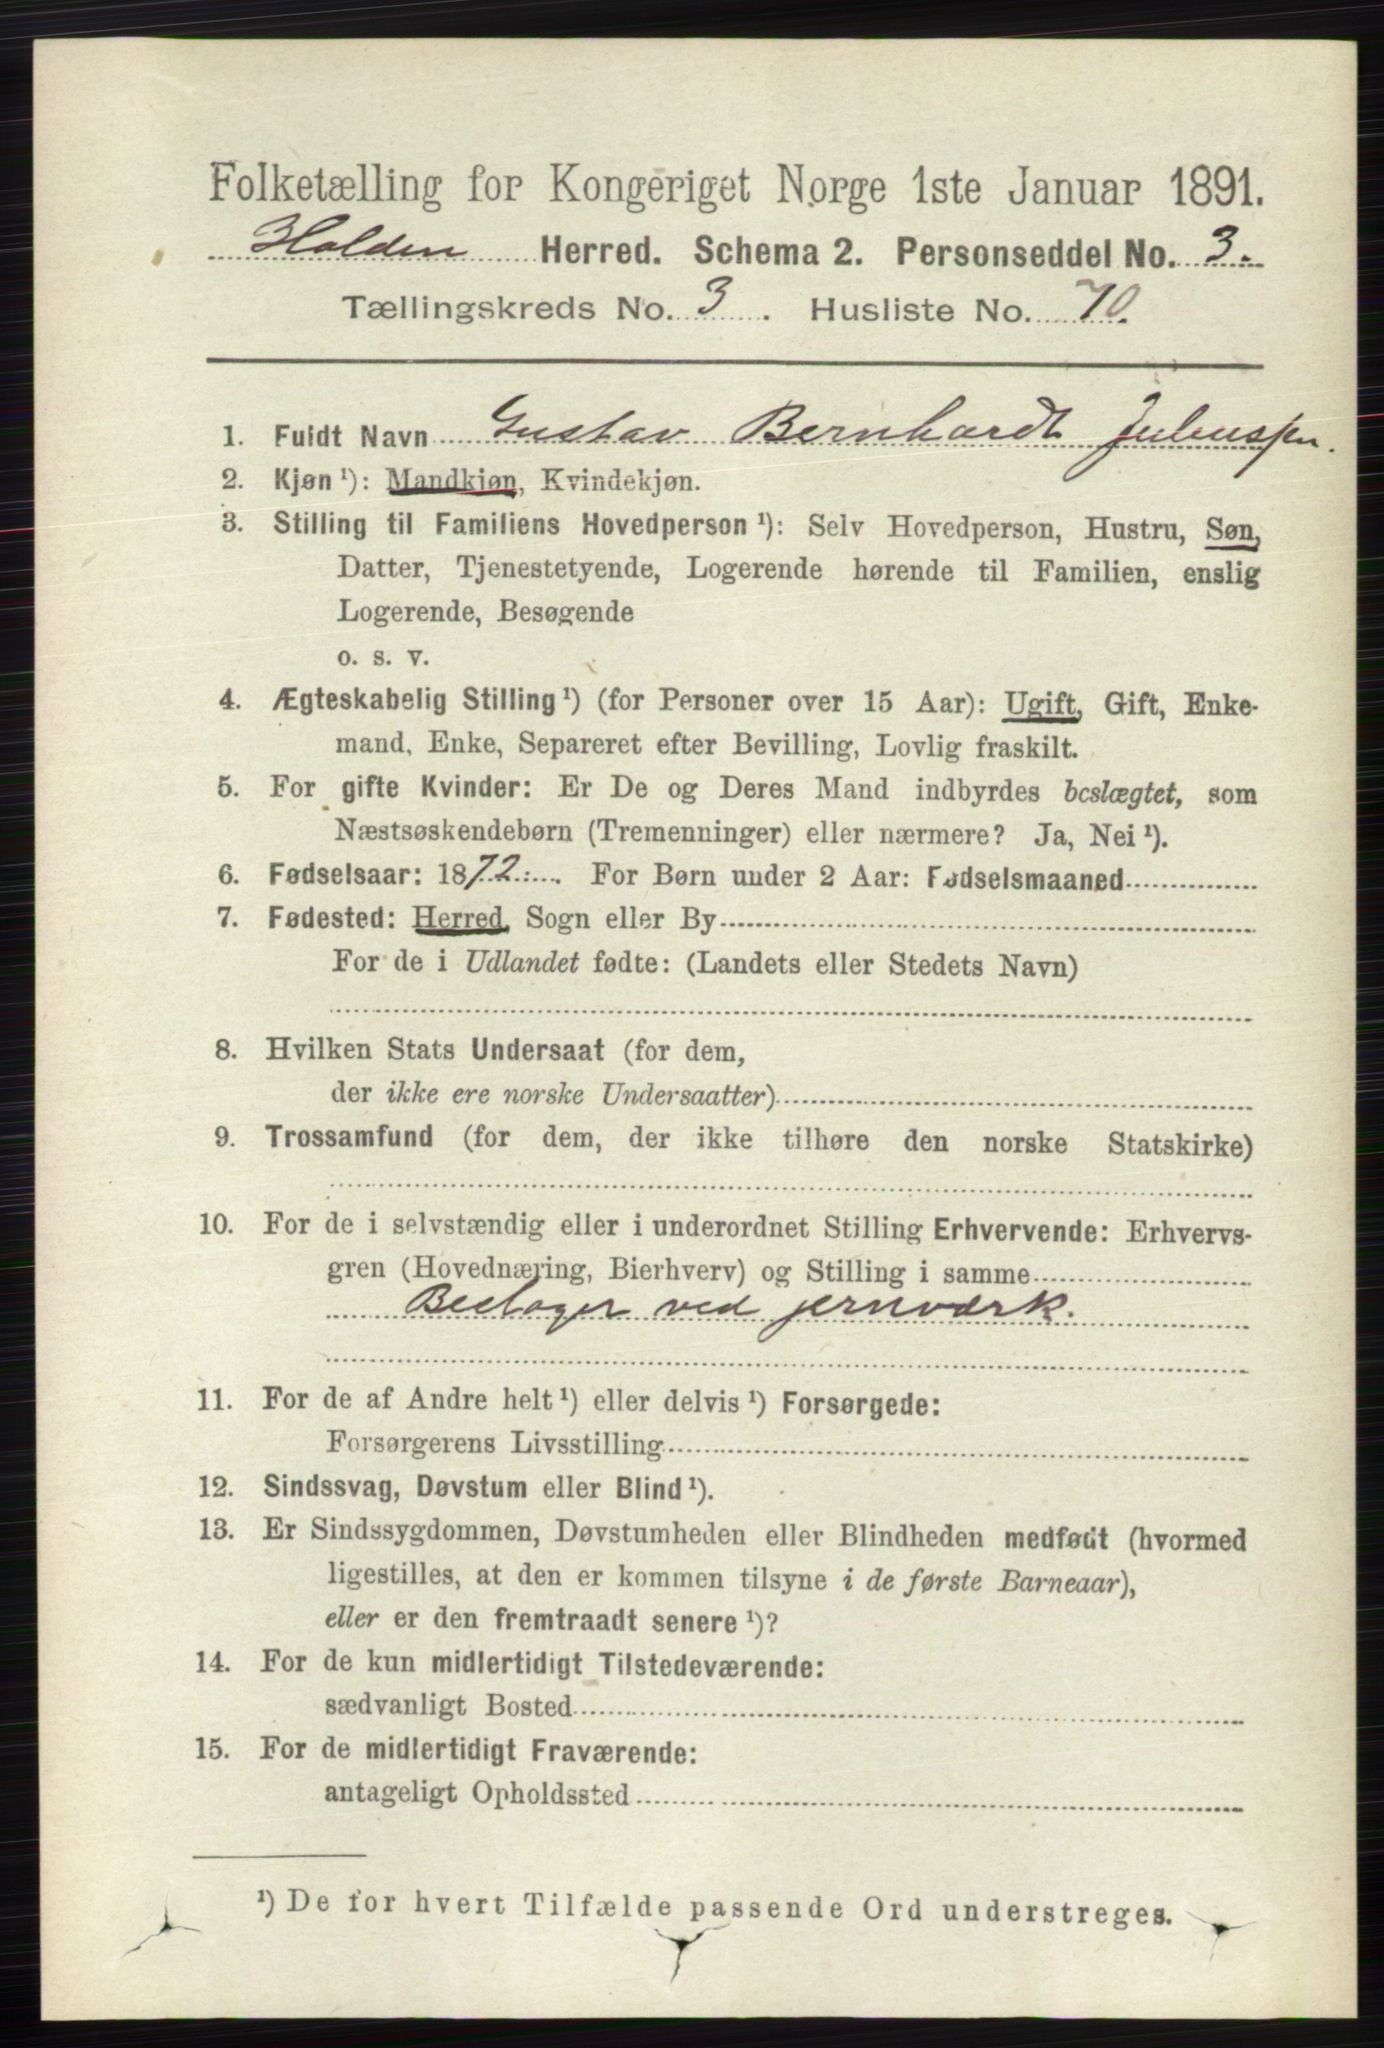 Folketælling for Kongeriget Norge 1ste Januar 1891.
Holden Herred. Schema 2. Personseddel No. 3.
Tællingskreds No. 3. Husliste No. 70.
1. Fuldt Navn Gustav Bernhardt Juliussen.
2. Kjøn ¹): Mandkjøn, Kvindekjøn.
3. Stilling til Familiens Hovedperson ¹): Selv Hovedperson, Hustru, Søn,
Datter, Tjenestetyende, Logerende hørende til Familien, enslig
Logerende, Besøgende
o. s. v.
4. Ægteskabelig Stilling ¹) (for Personer over 15 Aar): Ugift, Gift, Enke-
mand, Enke, Separeret efter Bevilling, Lovlig fraskilt.
5. For gifte Kvinder: Er De og Deres Mand indbyrdes beslægtet, som
Næstsøskendebørn (Tremenninger) eller nærmere? Ja, Nei ¹).
6. Fødselsaar: 1872. For Børn under 2 Aar: Fødselsmaaned
7. Fødested: Herred, Sogn eller By
For de i Udlandet fødte: (Landets eller Stedets Navn)
8. Hvilken Stats Undersaat (for dem,
der ikke ere norske Undersaatter)
9. Trossamfund (for dem, der ikke tilhøre den norske Statskirke)
10. For de i selvstændig eller i underordnet Stilling Erhvervende: Erhvervs-
gren (Hovednæring, Bierhverv) og Stilling i samme
ved jernværk.
11. For de af Andre helt ¹) eller delvis ¹) Forsørgede:
Forsørgerens Livsstilling
12. Sindssvag, Døvstum eller Blind ¹).
13. Er Sindssygdommen, Døvstumheden eller Blindheden medfødt (hvormed
ligestilles, at den er kommen tilsyne i de første Barneaar),
eller er den fremtraadt senere ¹)?
14. For de kun midlertidigt Tilstedeværende:
sædvanligt Bosted
15. For de midlertidigt Fraværende:
antageligt Opholdssted
¹) De for hvert Tilfælde passende Ord understreges.